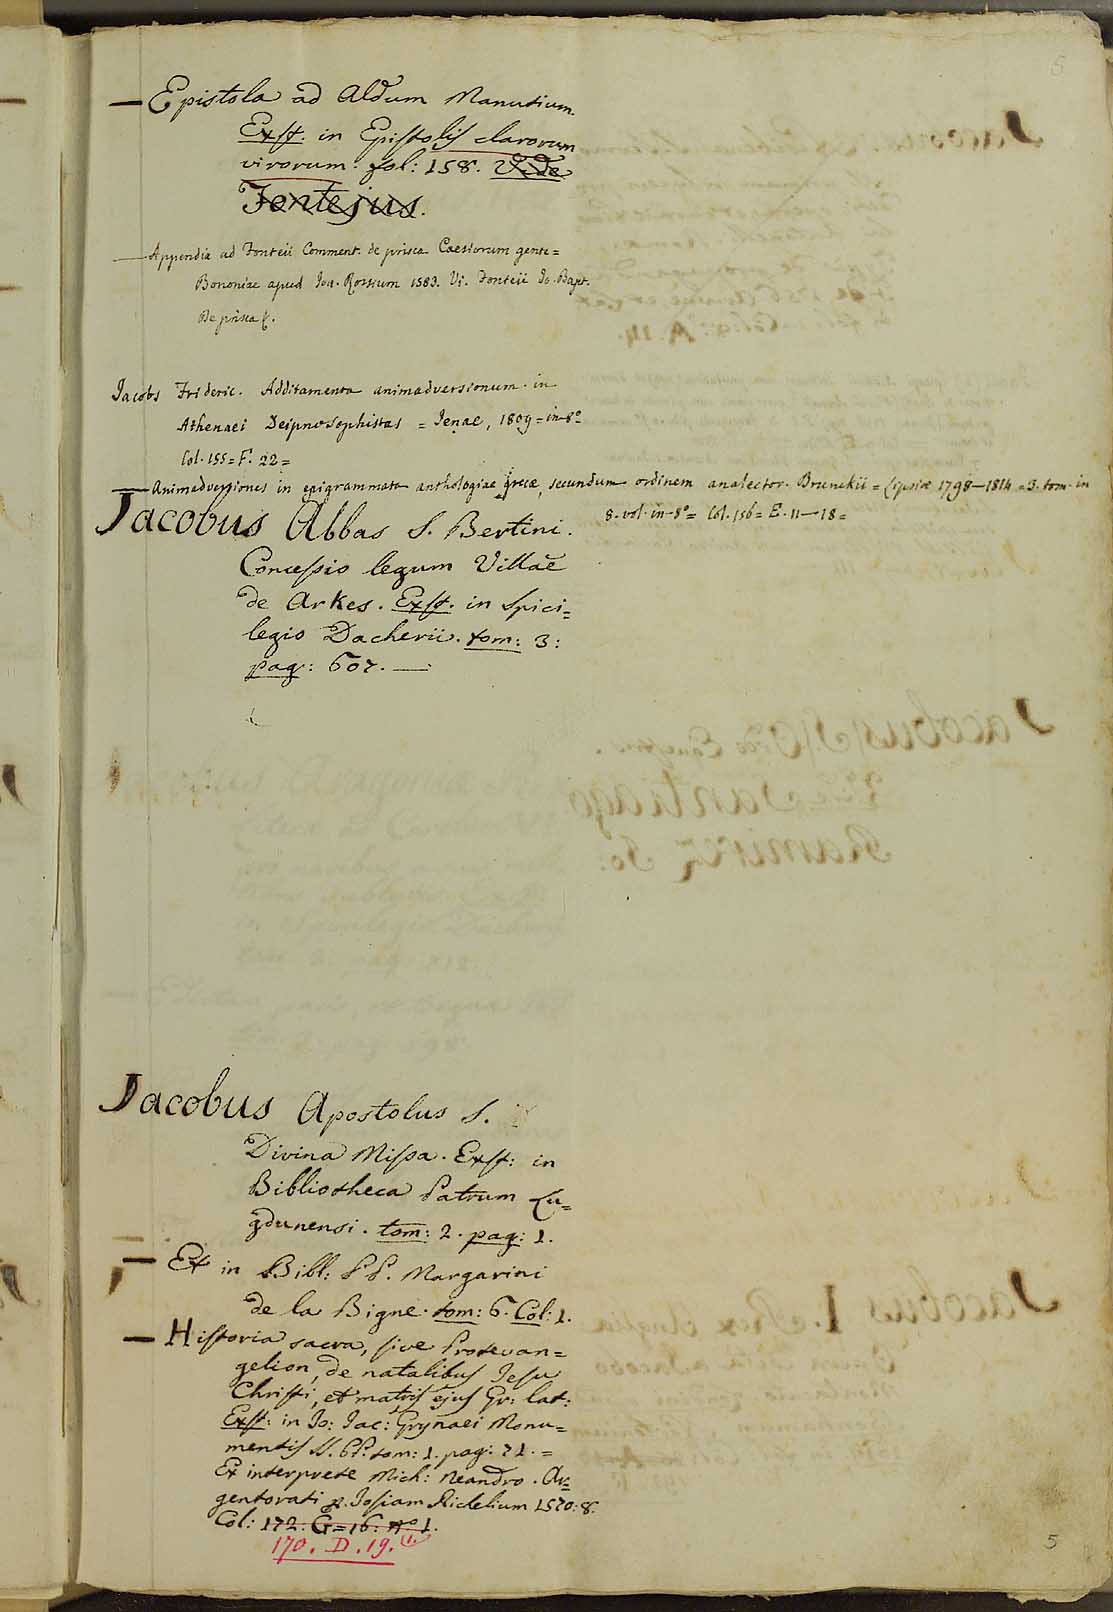 5
— Epistola ad Aldum Manutium.
Exst. in Epistolis clarorum
virorum: fol: 158. Vide
Fontejus.
— Appendix ad Fonteii Comment. de prisca Caesiorum gente =
Bononiae apud Joa. Rossium 1583. Vi. Fonteii Jo. Bapt.
De prisca &.
Jacobs Frideric. Additamenta animadversionum in
Athenaei Deipnosophistas = Jenae, 1809 = in-8º
Col. 155 = F. 22 =
— Animadversiones in epigrammata anthologiae grecæ, secundum ordinem analector. Brunckii = Lipsiæ 1798—1814 = 3. tom. in
8. vol. in-8º = Col. 156 = E. 11—18 =
Jacobus Abbas S. Bertini.
Concessio legum Villae
de Arkes. Exst. in Spici=
legio Dacherii. tom: 3:
pag: 607. —
Jacobus Apostolus S.
Divina Missa. Exst: in
Bibliotheca Patrum Lu=
gdunensi. tom: 2. pag: 1.
— Et in Bibl: PP. Margarini
de la Bigne. tom: 6. Col: 1.
— Historia sacra, sive Protevan=
gelion, de natalibus Jesu
Christi, et matris ejus Gr: lat:
Exst: in Jo: Jac: Grynaei Monu=
mentis SS. PP. tom: 1. pag: 71. =
Ex interprete Mich: Neandro. Ar=
gentorati p. Josiam Richelium 1570: 8.
Col: 172: G = 16: nº 1.
170. D. 19. (1.
5